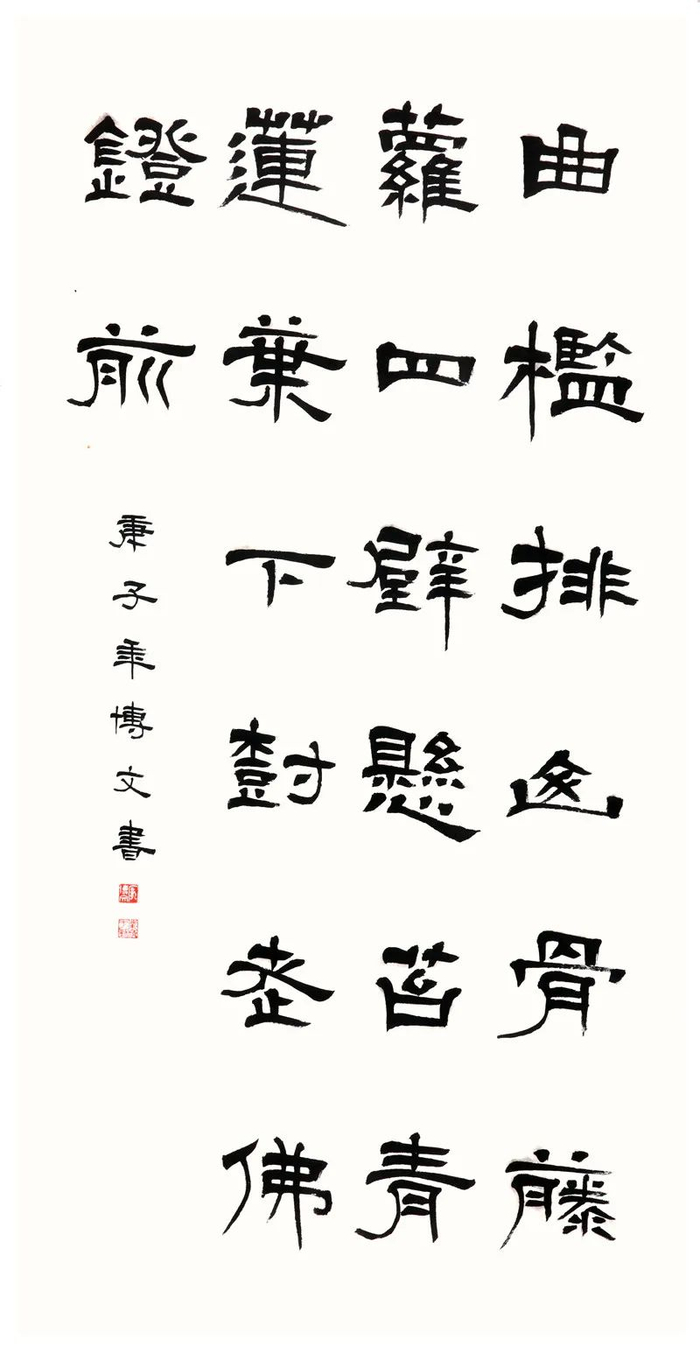 曲檻排骨藤
蘿四壁懸苔青
蓮葉下尌老佛
鐙前
庚子年博文書